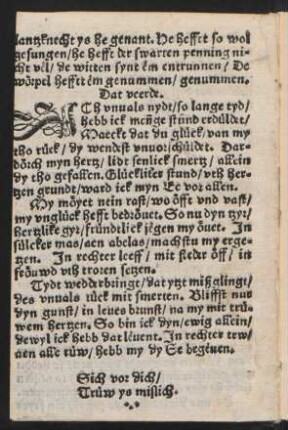 lantzknecht ys he genant. He hefft so wol
gesungen/ he hefft der swarten penning ni-
cht vêl/ de witten synt êm entrunnen/ De
wörpel hefft êm genummen/ genummen.
Dat veerde.
ICh vnuals nydt/ so lange tyd/
hebb ick menge stund erdüldet/
Maeckt dat du glück/ van my
tho rück/ dy wendst vnuorschüldt. Dar-
dörch myn hertz/ lidt senlick smertz/ allein
dy tho gefallen. Glücklike stund/ vth her-
tzen grundt/ ward ick myn vor allen.
My möyet nein rast/ wo öfft vnd vast/
my vnglück hefft bedröuet. So nu dyn tzyr/
hertzlike gyr/ fründtlick jêgen my öuet. In
sülcker mas/ aen abelas/ machstu my erge-
tzen. In rechter leeff/ mit steder öff/ in
fröuwd vth troren setzen.
Tydt wedderbringt/ dat ytzt mißglingt/
des vnuals rück mit smerten. Bliffst nuo
dyn gunst/ in leues brunst/ na my mit trü-
wem hertzen. So bin ick dyn/ ewig allein/
dewyl ick hebb dat lêuent. In rechter trw/
aen alle rüw/ hebb my dy Se begeuen.
Sich vor dich/
Trüw ys mislich.